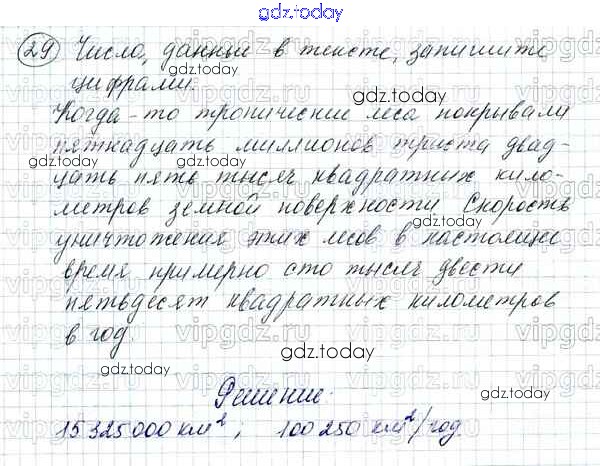 gdz.today
29 Число, данные в тексте, запишите
цифрами.
Когда-то тропические леса покрывали
пятнадцать миллионов триста двад-
цать пять тысяч квадратных кило-
метров земной поверхности. Скорость
уничтожения этих лесов в настоящие
время примерно сто тысяч двести
пятьдесят квадратных километров
в год.
Решение:
15 325 000 км², 100 250 км²/год.